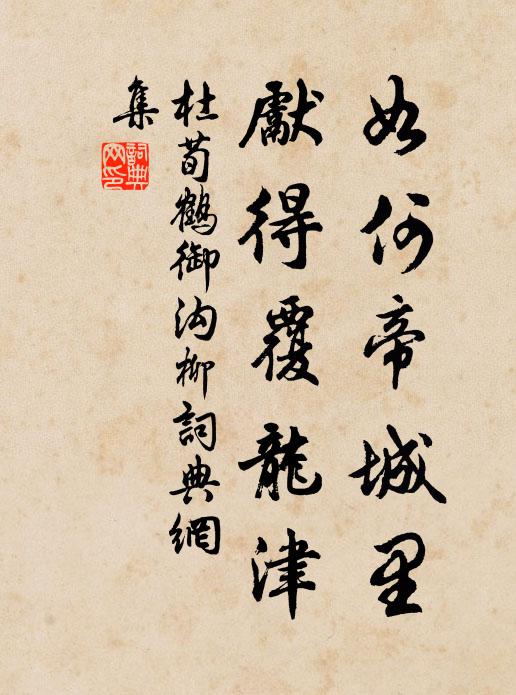 如何帝城里
獻得覆龍津
杜荀鶴御沟柳詞典網
集
詞典
网印